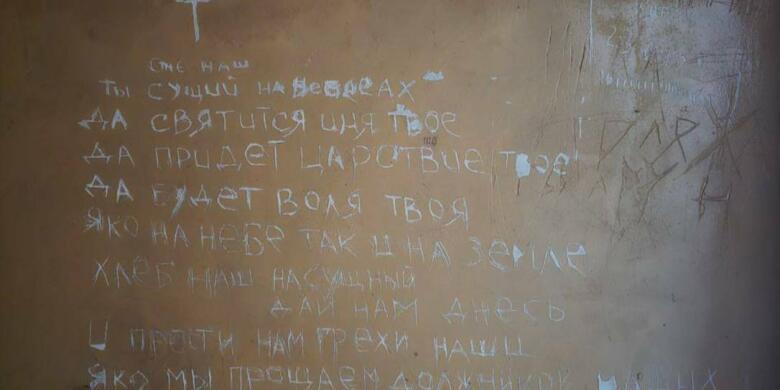 ОТЧЕ НАШ
ТЫ СУЩИЙ НА НЕБЕСАХ
ДА СВЯТИТСЯ ИМЯ ТВОЕ
ДА ПРИДЕТ ЦАРСТВИЕ ТВОЕ
ДА БУДЕТ ВОЛЯ ТВОЯ
ЯКО НА НЕБЕ ТАК И НА ЗЕМЛЕ
ХЛЕБ НАШ НАСУЩНЫЙ
ДАЙ НАМ ДНЕСЬ
И ПРОСТИ НАМ ГРЕХИ НАШИ
ЯКО МЫ ПРОЩАЕМ